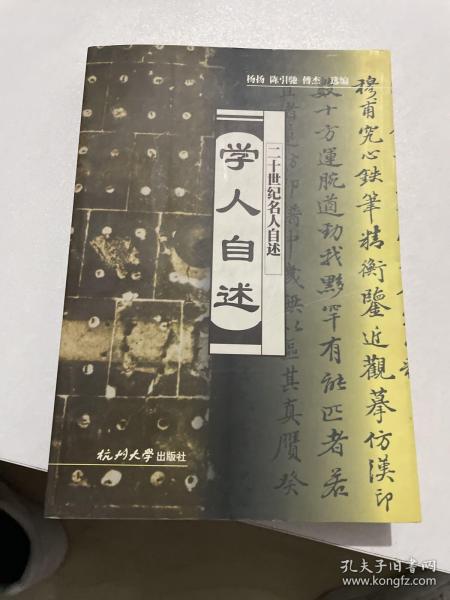 杨扬 陈引驰 傅杰 选编
二十世纪名人自述
学人自述
穆甫究心鉄筆精衡鑒近觀摹仿漢印
數十方運腕遒劲我黟罕有能匹者若
其真贋癸
杭州大学出版社
孔夫子旧书网
www.kongfz.com